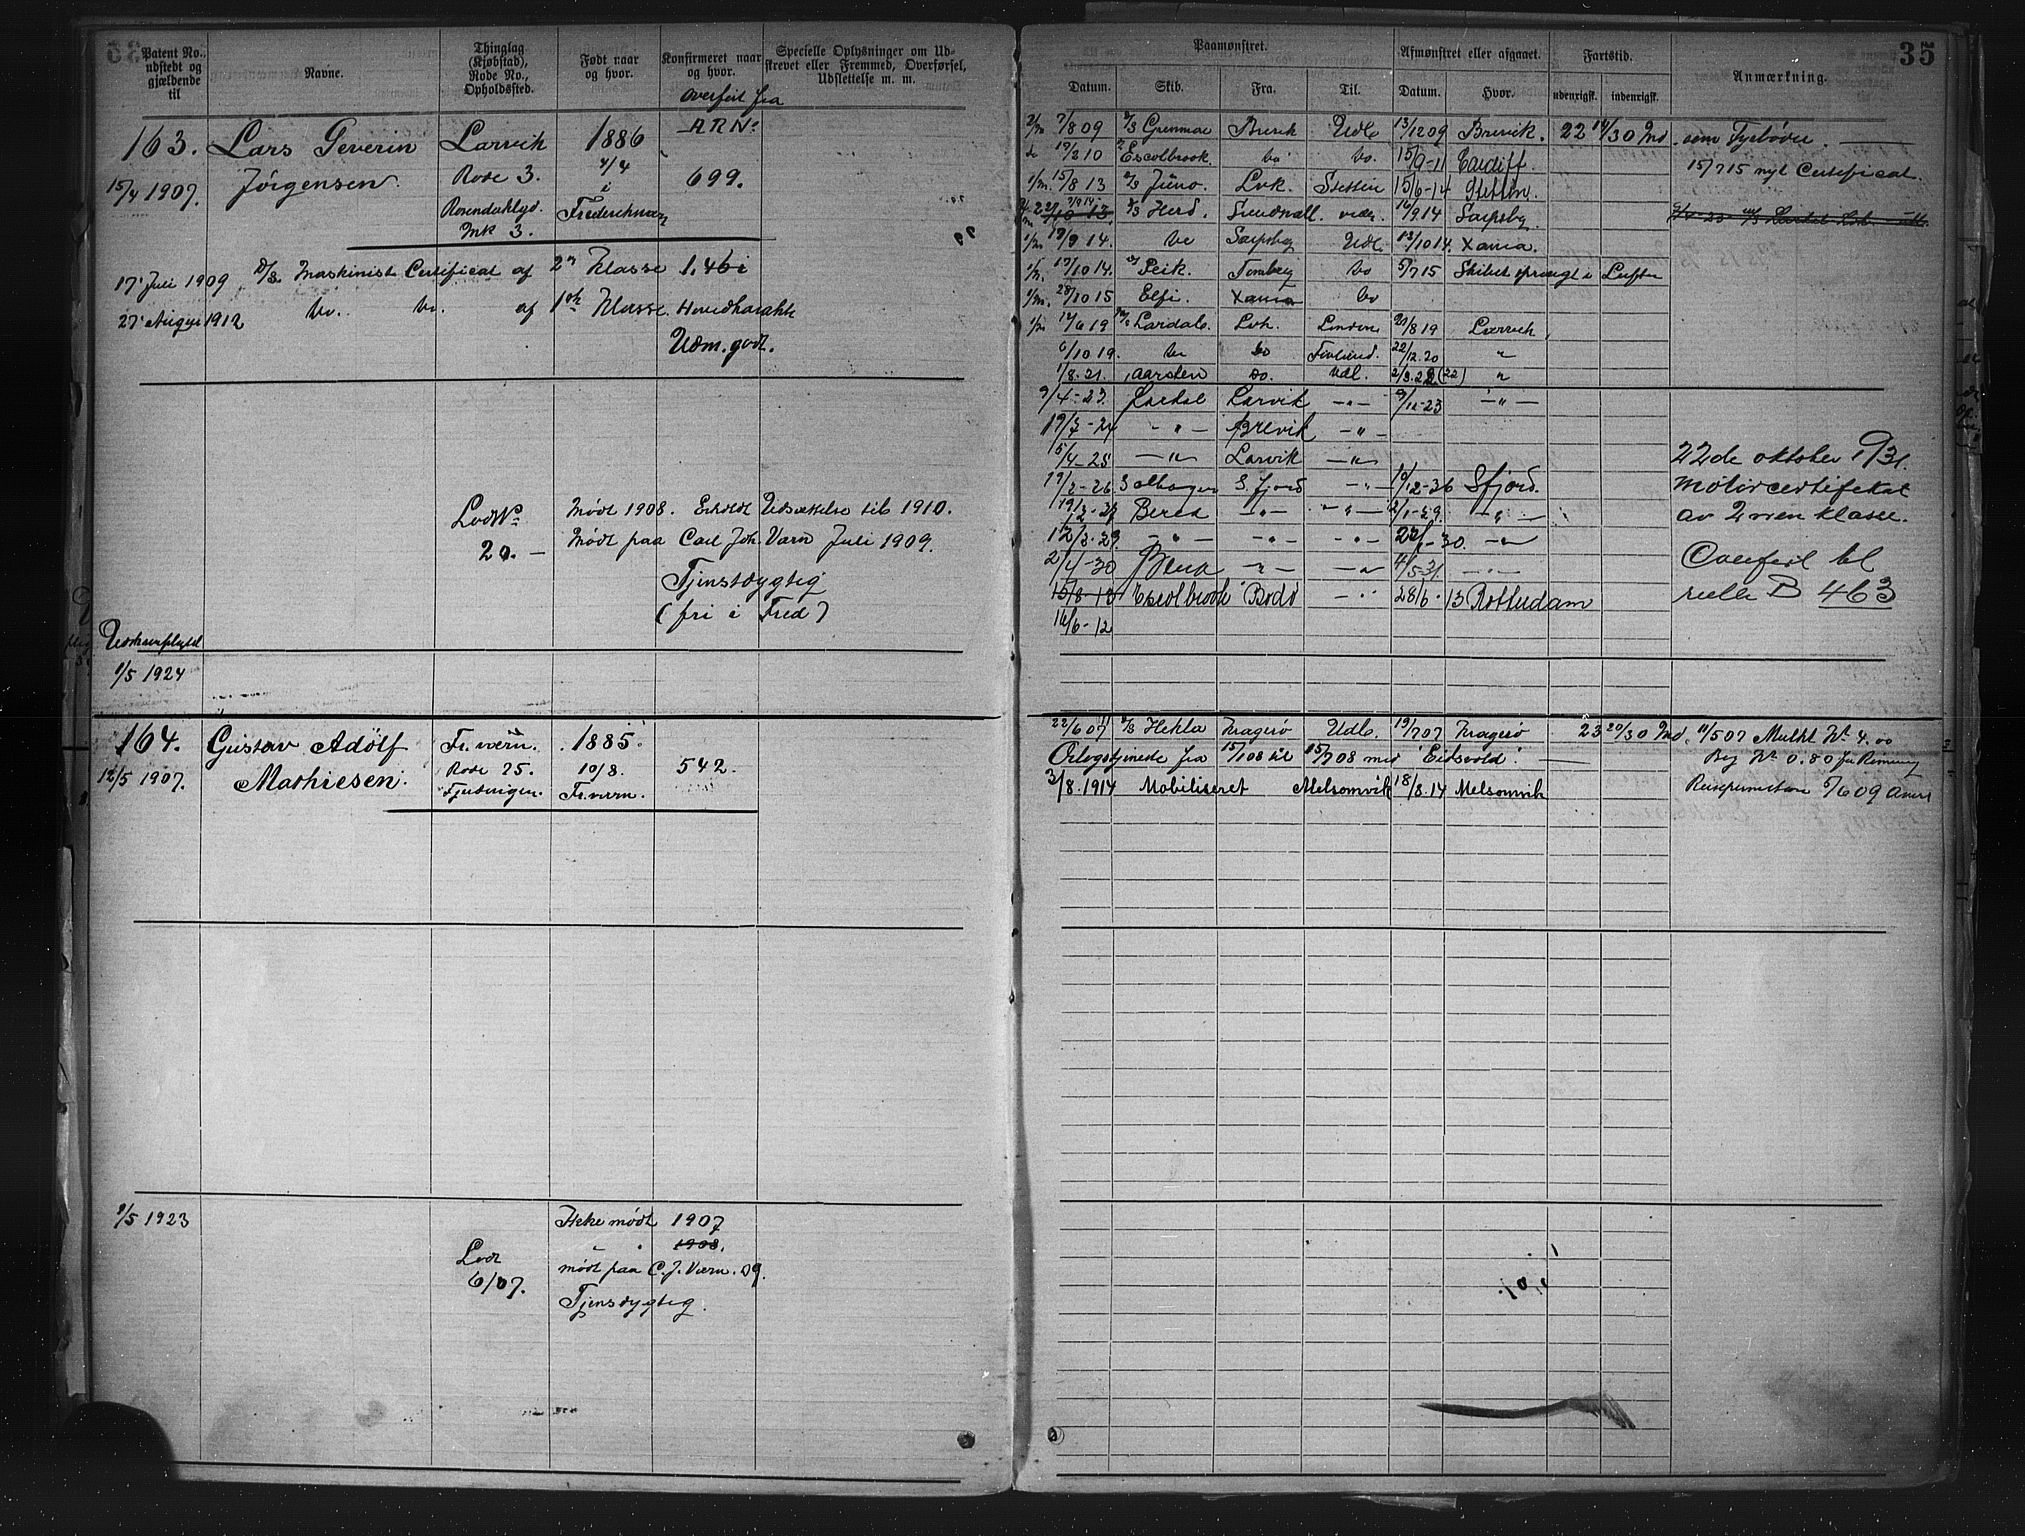 35
Patent No., udstedt og gjældende til
Navne.
Thinglag (Kjøbstad), Rode No., Opholdssted.
Født naar og hvor.
Konfirmeret naar og hvor.
Specielle Oplysninger om Udskrevet eller Fremmed, Overførsel, Udslettelse m. m.
Paamønstret.
Afmønstret eller afgaaet.
Fartstid.
Anmærkning.
Datum. Skib. Fra. Til. Datum. Hvor. udenrigsk. indenrigsk.
overført fra
A R No
163. Lars Severin Larvik 1886
Jørgensen. Rode 3. 4/4 699.
15/4 1907. i
Frederiksværn
Mk 3.
17' Juli 1909 D/S. Maskinist Certificat af 2n Klasse 1.46
27' August 1912 do. do. af 1ste Klasse. Hovedkarakter
Udm. godt.
Lod No Mødt 1908. Erholdt Udsættelse til 1910.
20. — Mødt paa Carl Joh. Værn Juli 1909.
Tjenstdygtig
(fri i Fred)
1/5 1924
7/8 09 Brevik Udl. 13/12 09 Brevik. 22 14/30 Md. som Fyrbøder.
19/2 10 Escolbrook do do. 15/9-11 Cardiff. 15/7 15 nyt Certificat.
1/M. 15/8 13 D/S Juno. Lvk. Stettin 15/6-14 Stettin.
D/S Herd. 16/9 14 Sarpsbg
1/M 19/9 14. do Sarpsbg Udl. 13/10 14. Xania.
1/M. 17/10 14. Peik. Tønsberg do 5/7 15 Skibet sprængt i Luften
1/M. 28/10 15 Elfi. Xania do
1/M 14/6 19 Lardal. Lvk. London 21/8 19 Larvik
6/10 19. do do Finland. 22/12.20 "
1/8. 21. Aarsten do. Udl. (22) "
9/4-23. Lardal Larvik —"— 9/12-23 —"—
19/3-24 —"— Brevik —"—
15/4-25 —"— Larvik —"—
19/2-26. Solhaugen S. fjord —"— S fjord.
Bered —"— —"— 2/1-29. —"—
12/2-29. —"— —"— —"— —"—
2/4-30 —"— —"— 4/5 31. —"—
15/8-13 Escolbrook Bodø —"— 28/6-13 Rotterdam
16/6-12
22de oktober 1931.
Motorcertifikat
av 2nen klasse.
Overført til
rulle B 463
164. Gustav Adolf Fr. værn. 1885.
12/5 1907. Mathiesen. Rode 25. 10/8. 542.
Fr. værn.
22/6 07 D/S Hekla Kragerø Udl. 19/7 07 Kragerø 23 20/30 Md. 11/5 07 Mulkt Kr 4.00
Orlogstjeneste fra 15/1 08 til 15/7 08 med "Eidsvold". —
3/8. 1914 Mobiliseret Melsomvik 18/8. 14 Melsomvik
1/5 1923
Ikke mødt 1907
" 1908.
Lodt mødt paa C. J. Værn. 09.
6/07. Tjensdygtig.